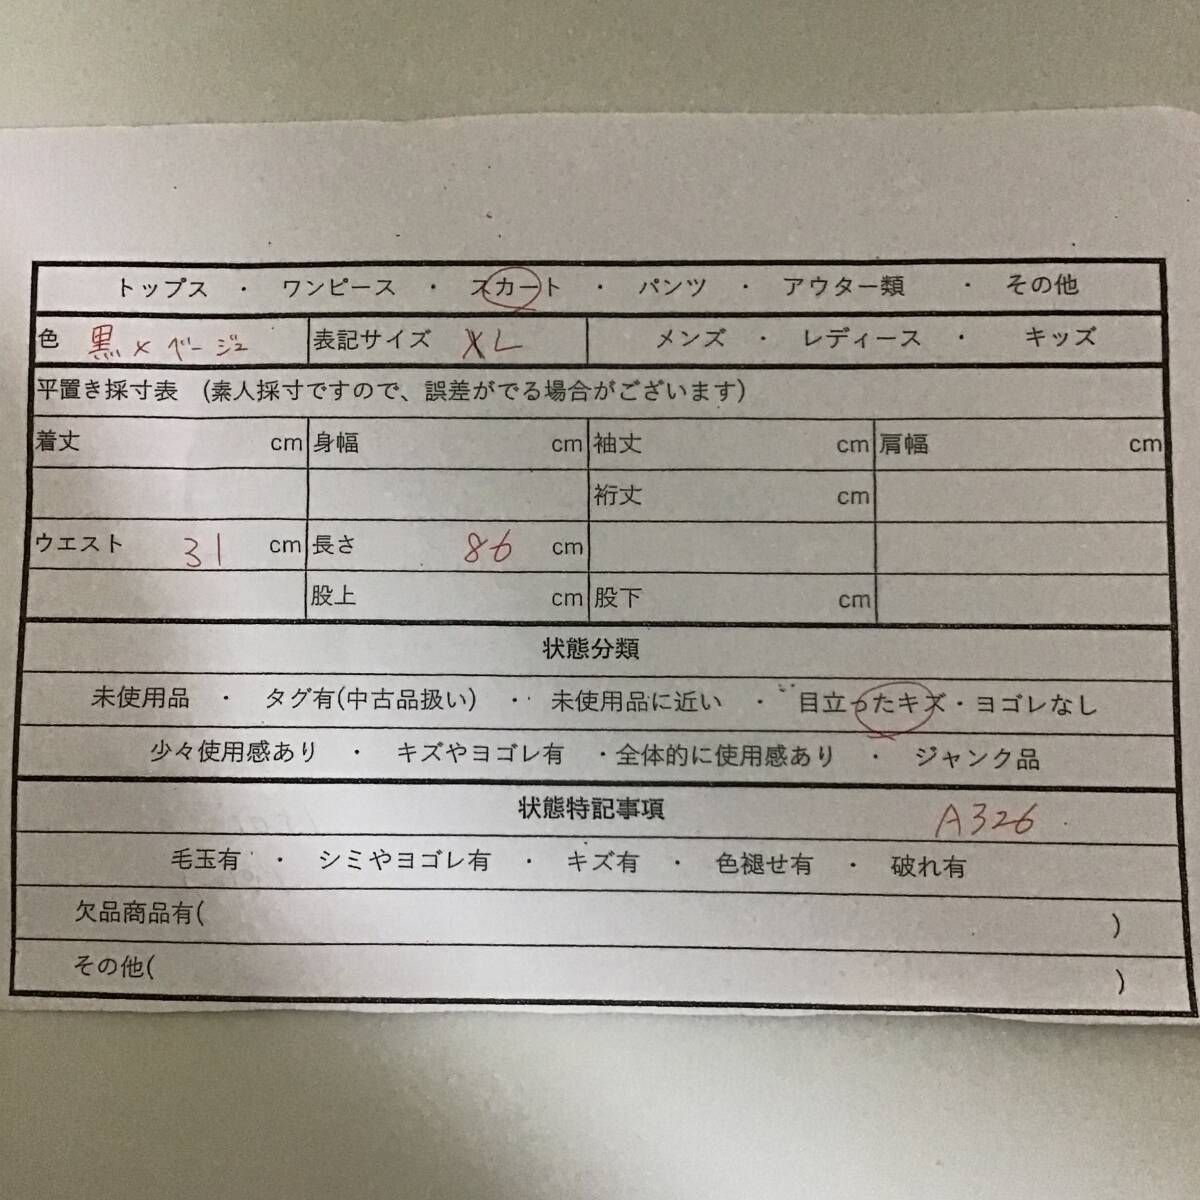 トップス ・ ワンピース ・ スカート ・ パンツ ・ アウター類 ・ その他
色 黒×ベージュ 表記サイズ XL メンズ ・ レディース ・ キッズ
平置き採寸表 (素人採寸ですので、誤差がでる場合がございます)
着丈 cm 身幅 cm 袖丈 cm 肩幅 cm
裄丈 cm
ウエスト 31 cm 長さ 86 cm
股上 cm 股下 cm
状態分類
未使用品 ・ タグ有(中古品扱い) ・ 未使用品に近い ・ 目立ったキズ・ヨゴレなし
少々使用感あり ・ キズやヨゴレ有 ・全体的に使用感あり ・ ジャンク品
状態特記事項 A326
毛玉有 ・ シミやヨゴレ有 ・ キズ有 ・ 色褪せ有 ・ 破れ有
欠品商品有( )
その他( )